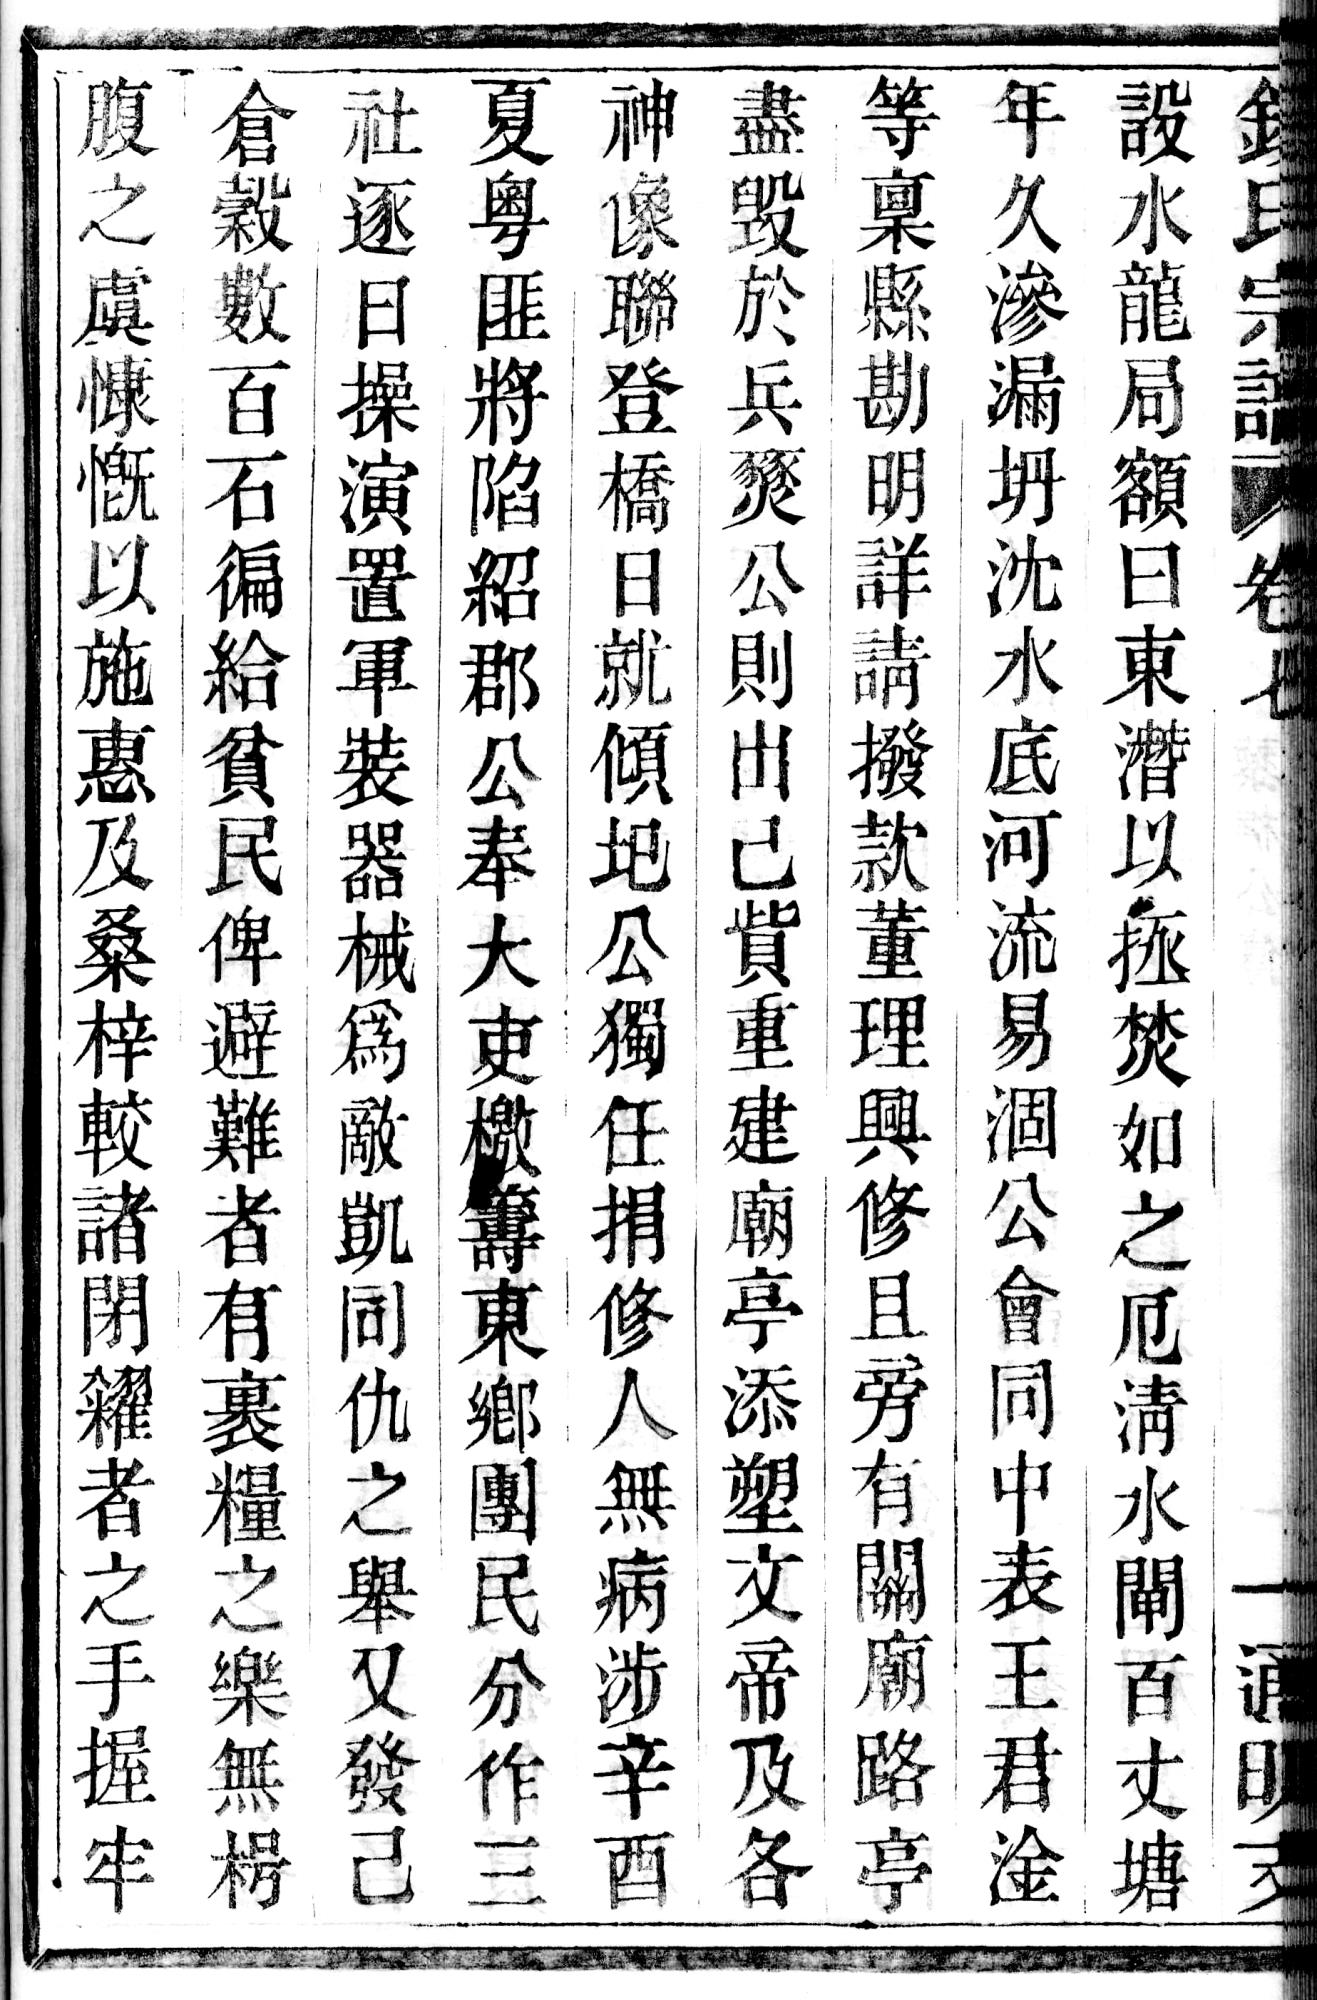 氏宗譜 卷七 一 通明
設水龍局額曰東潛以拯焚如之厄淸水閘百丈塘
年久滲漏坍沈水底河流易涸公會同中表王君淦
等稟縣勘明詳請撥款董理興修且旁有關廟路亭
盡毀於兵燹公則出己貲重建廟亭添塑文帝及各
神像聯登橋日就傾圯公獨任捐修人無病涉辛酉
夏粵匪將陷紹郡公奉大吏檄籌東鄉團民分作三
社逐日操演置軍裝器械爲敵凱同仇之舉又發己
倉榖數百石徧給貧民俾避難者有裹糧之樂無枵
腹之虞慷慨以施惠及桑梓較諸閉糴者之手握牢